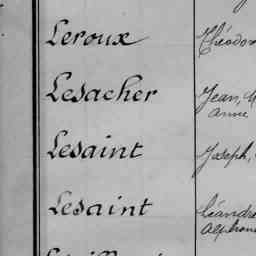 Leroux Théodor
Lesacher Jean, M
Anne
Lesaint Joseph,
Lesaint Léandre
Alphons